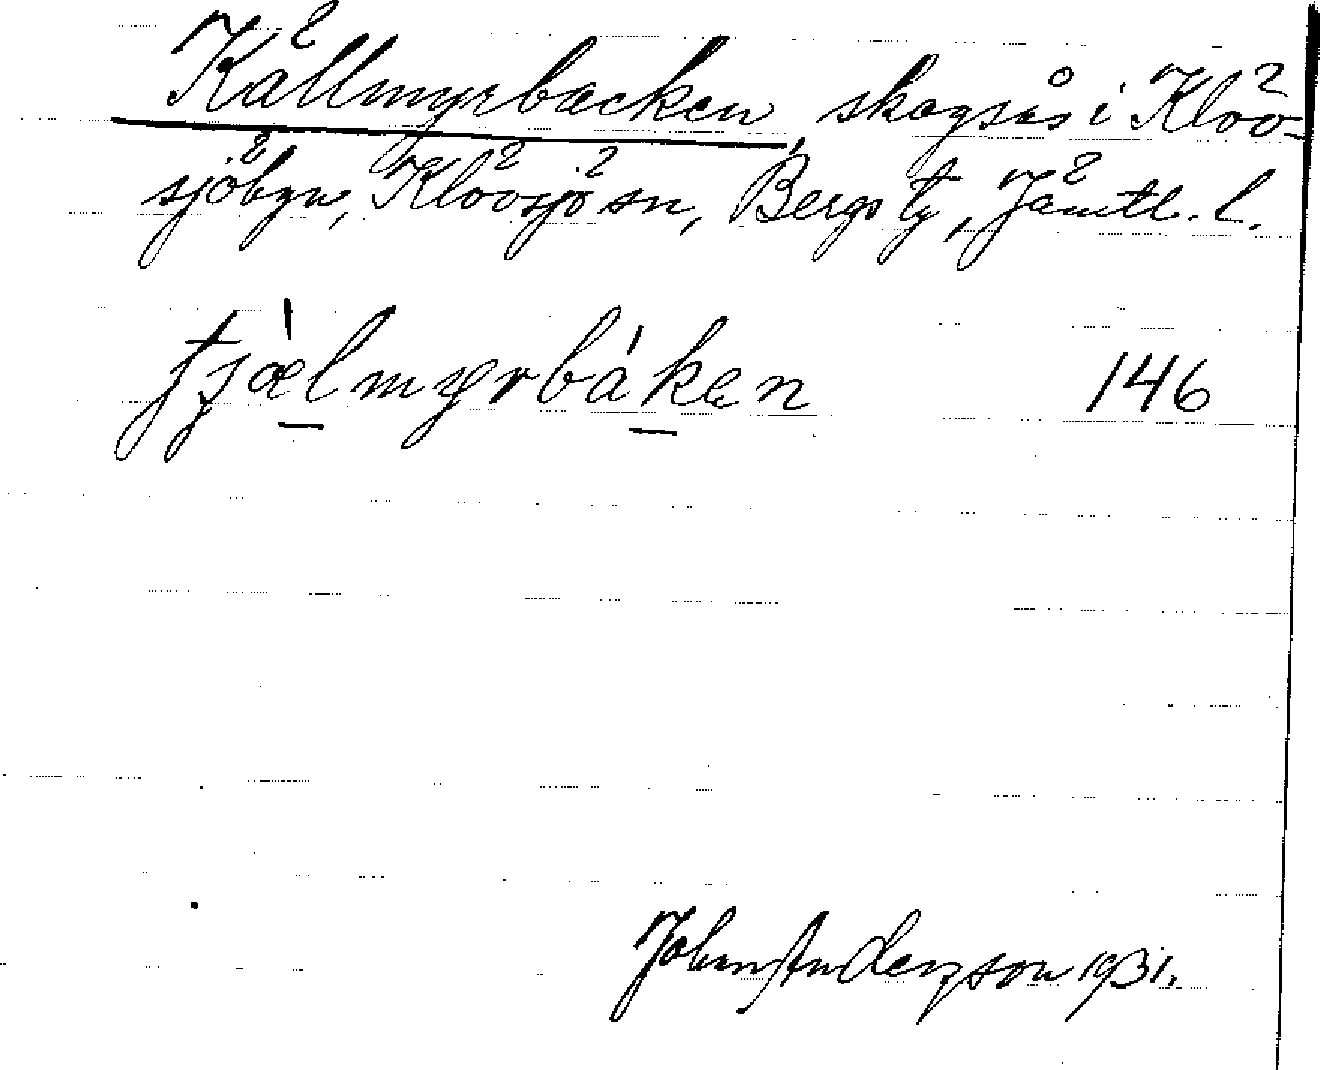 Källmyrbacken, skogsås i Klöv-
sjöbyn, Klövsjö sn, Bergs tg, Jämtl. l.
tjæ̀lmyrbákен 146
Johan Anderzson 1931.